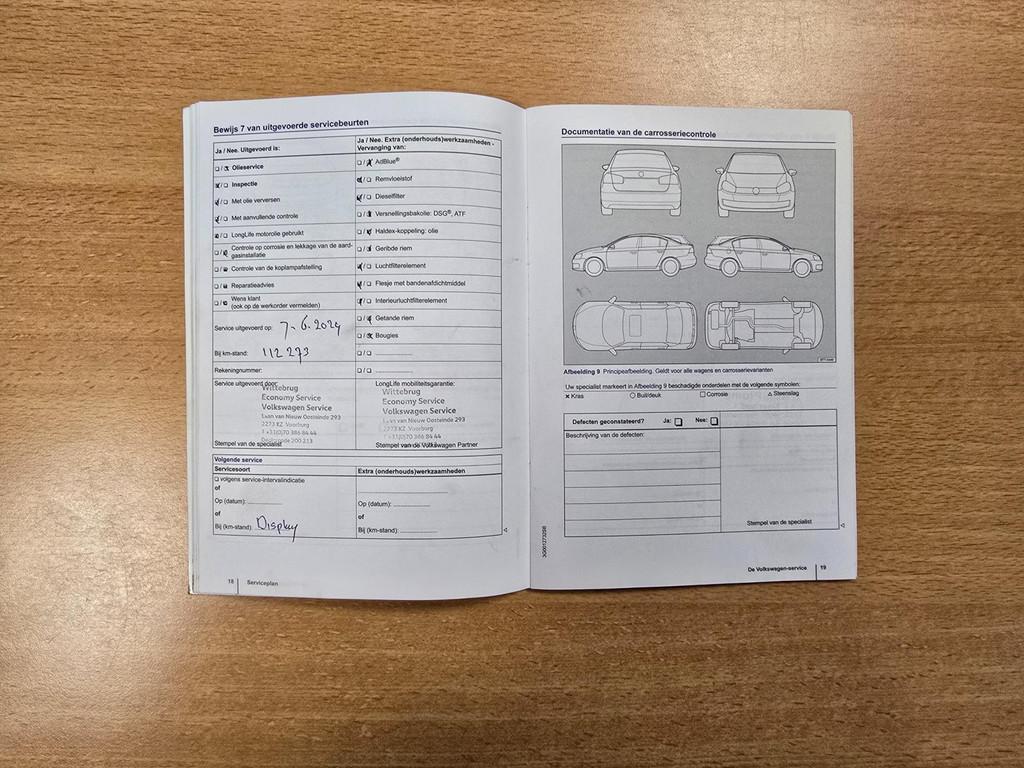 Bewijs 7 van uitgevoerde servicebeurten
Ja / Nee. Uitgevoerd is:
Olieservice
Inspectie
Met olie verversen
Met aanvullende controle
LongLife motorolie gebruikt
Controle op corrosie en lekkage van de aard-
gasinstallatie
Controle van de koplampafstelling
Reparatieadvies
Wens klant
(ook op de werkorder vermelden)
Service uitgevoerd op: 7-6-2024
Bij km-stand: 112 273
Rekeningnummer:
Service uitgevoerd door:
Wittebrug
Economy Service
Volkswagen Service
Laan van Nieuw Oosteinde 293
2273 KZ Voorburg
Stempel van de specialist
Ja / Nee. Extra (onderhouds)werkzaamheden -
Vervanging van:
AdBlue®
Remvloeistof
Dieselfilter
Versnellingsbakolie: DSG®, ATF
Haldex-koppeling: olie
Geribde riem
Luchtfilterelement
Flesje met bandenafdichtmiddel
Interieurluchtfilterelement
Getande riem
Bougies
LongLife mobiliteitsgarantie:
Wittebrug
Economy Service
Volkswagen Service
Laan van Nieuw Oosteinde 293
2273 KZ Voorburg
Stempel van de Volkswagen Partner
Volgende service
Servicesoort
volgens service-intervalindicatie
of
Op (datum):
of
Bij (km-stand): Display
Extra (onderhouds)werkzaamheden
Op (datum):
of
Bij (km-stand):
18 Serviceplan
Documentatie van de carrosseriecontrole
Afbeelding 9 Principeafbeelding. Geldt voor alle wagens en carrosserievarianten
Uw specialist markeert in Afbeelding 9 beschadigde onderdelen met de volgende symbolen:
× Kras ○ Buil/deuk □ Corrosie △ Steenslag
Defecten geconstateerd? Ja: Nee:
Beschrijving van de defecten:
Stempel van de specialist
De Volkswagen-service 19